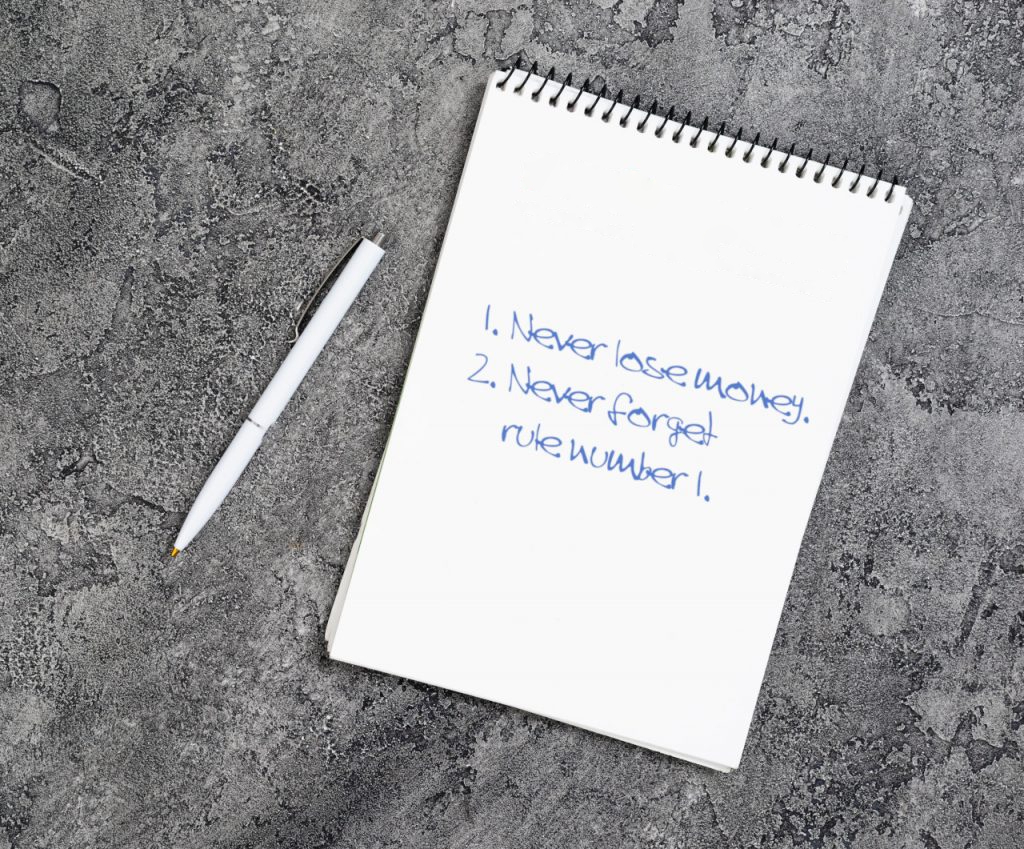 1. Never lose money.
2. Never forget
rule number 1.